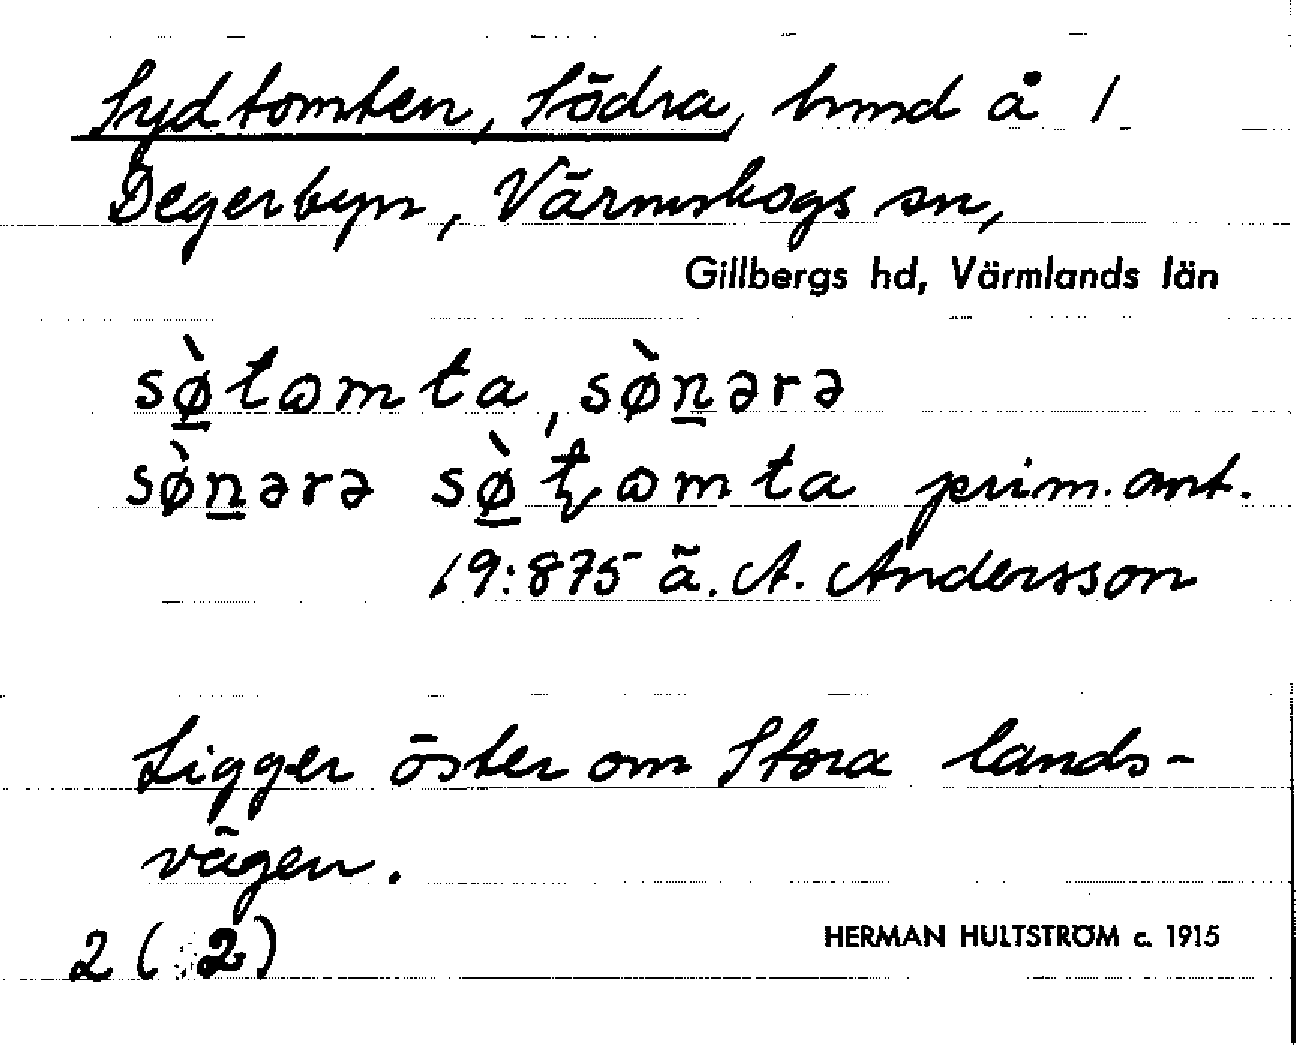 Sydtomten, Södra, hmd å 1
Degerbyn, Värmskogs sn,
Gillbergs hd, Värmlands län
sø̲̀tɷmta, sø̀n̲ərə
sø̀n̲ərə sø̲̀tɷmta prim. ant.
19:875 ä. A. Andersson
Ligger öster om Stora lands-
vägen.
2 (2)
HERMAN HULTSTRÖM c. 1915